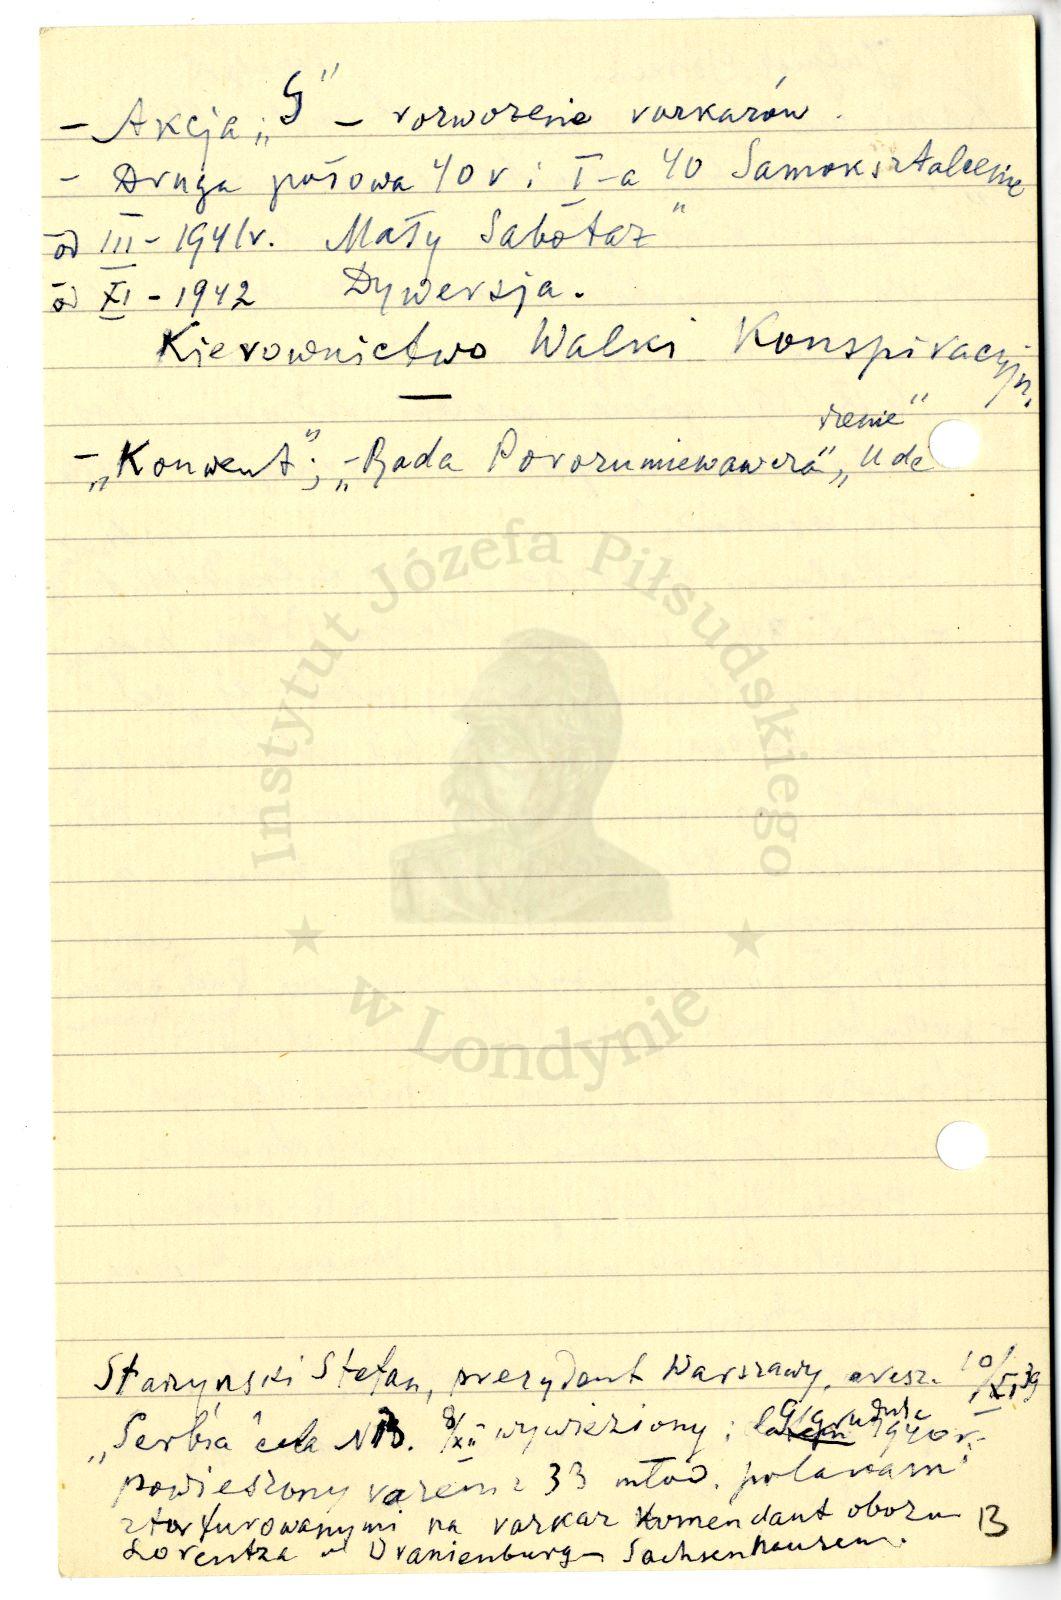 - Akcja „G" - rozworzenie rozkazów.
- Druga połowa 40 r i I-a 40 Samokształcenie
od III - 1941 r. Mały Sabotaż"
od XI - 1942 Dywersja.
Kierownictwo Walki Konspiracyjn.
- „Konwent"; - „Rada Porozumiewawcza" „Ude
rzenie"
Instytut Józefa Piłsudskiego
w Londynie
Starzyński Stefan, prezydent Warszawy, aresz. 10/XI 39
„Serbia" cela N13. 8/XII wywieziony; 19 grudnia 1940 r.
powieszony razem z 33 młod. polakami
ztorturowanymi na rozkaz komendant obozu
Lorentza w Oranienburg - Sachsenhausen.
13